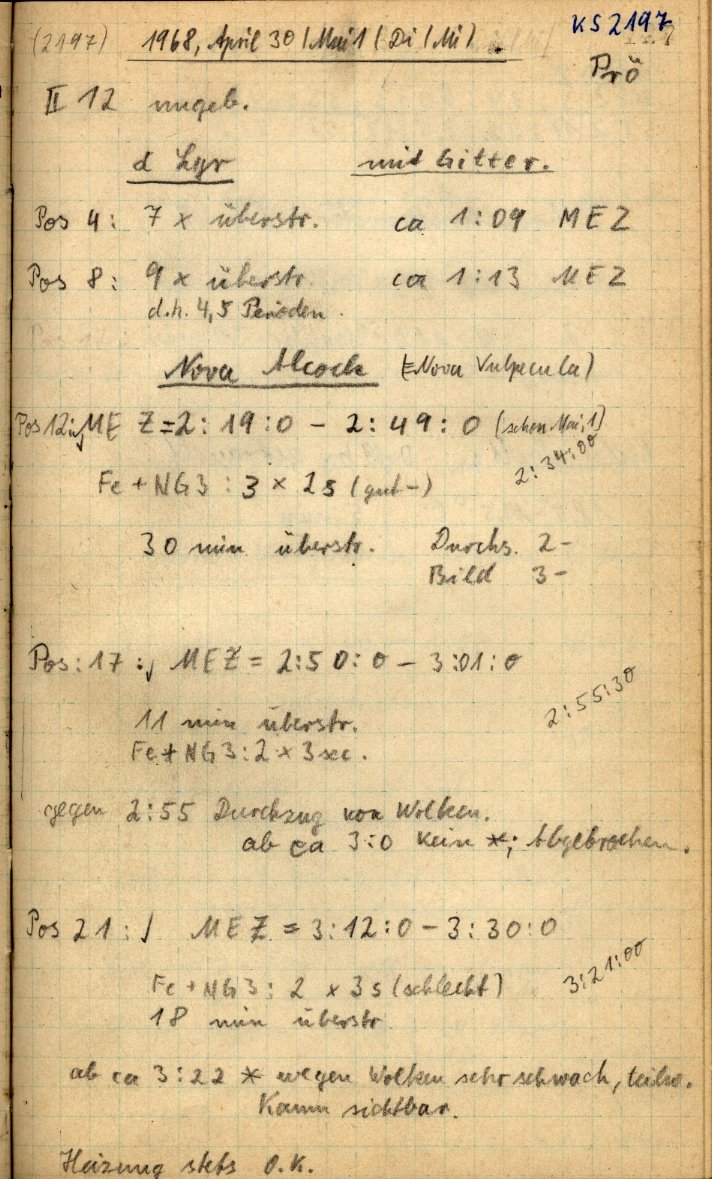 (2197) 1968, April 30 / Mai 1 (Di / Mi) KS 2197
Prö
II 12 ungeb.
α Lyr mit Gitter.
Pos 4: 7 x überstr. ca 1:09 MEZ
Pos 8: 9 x überstr. ca 1:13 MEZ
d.h. 4,5 Perioden.
Nova Alcock (=Nova Vulpecula)
Pos 12: MEZ = 2:19:0 - 2:49:0 (schon Mai, 1)
2:34:00
Fe + NG3: 3 x 2s (gut-)
30 min überstr. Durchs. 2-
Bild 3-
Pos: 17: MEZ = 2:50:0 - 3:01:0
2:55:30
11 min überstr.
Fe + NG3: 2 x 3 sec.
gegen 2:55 Durchzug von Wolken.
ab ca 3:0 kein *; Abgebrochen.
Pos 21: MEZ = 3:12:0 - 3:30:0
3:21:00
Fe + NG3: 2 x 3s (schlecht)
18 min überstr.
ab ca 3:22 * wegen Wolken sehr schwach, teilw.
Kaum sichtbar.
Heizung stets O.K.